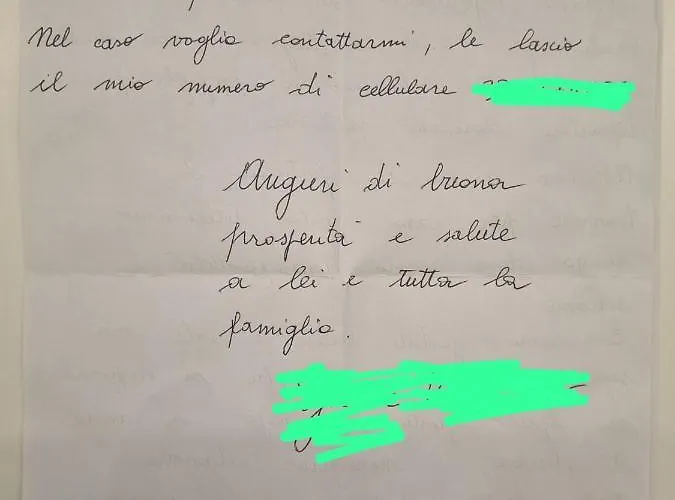 Nel caso voglia contattarmi, le lascio
il mio numero di cellulare
Auguri di buona
prosperità e salute
a lei e tutta la
famiglia.